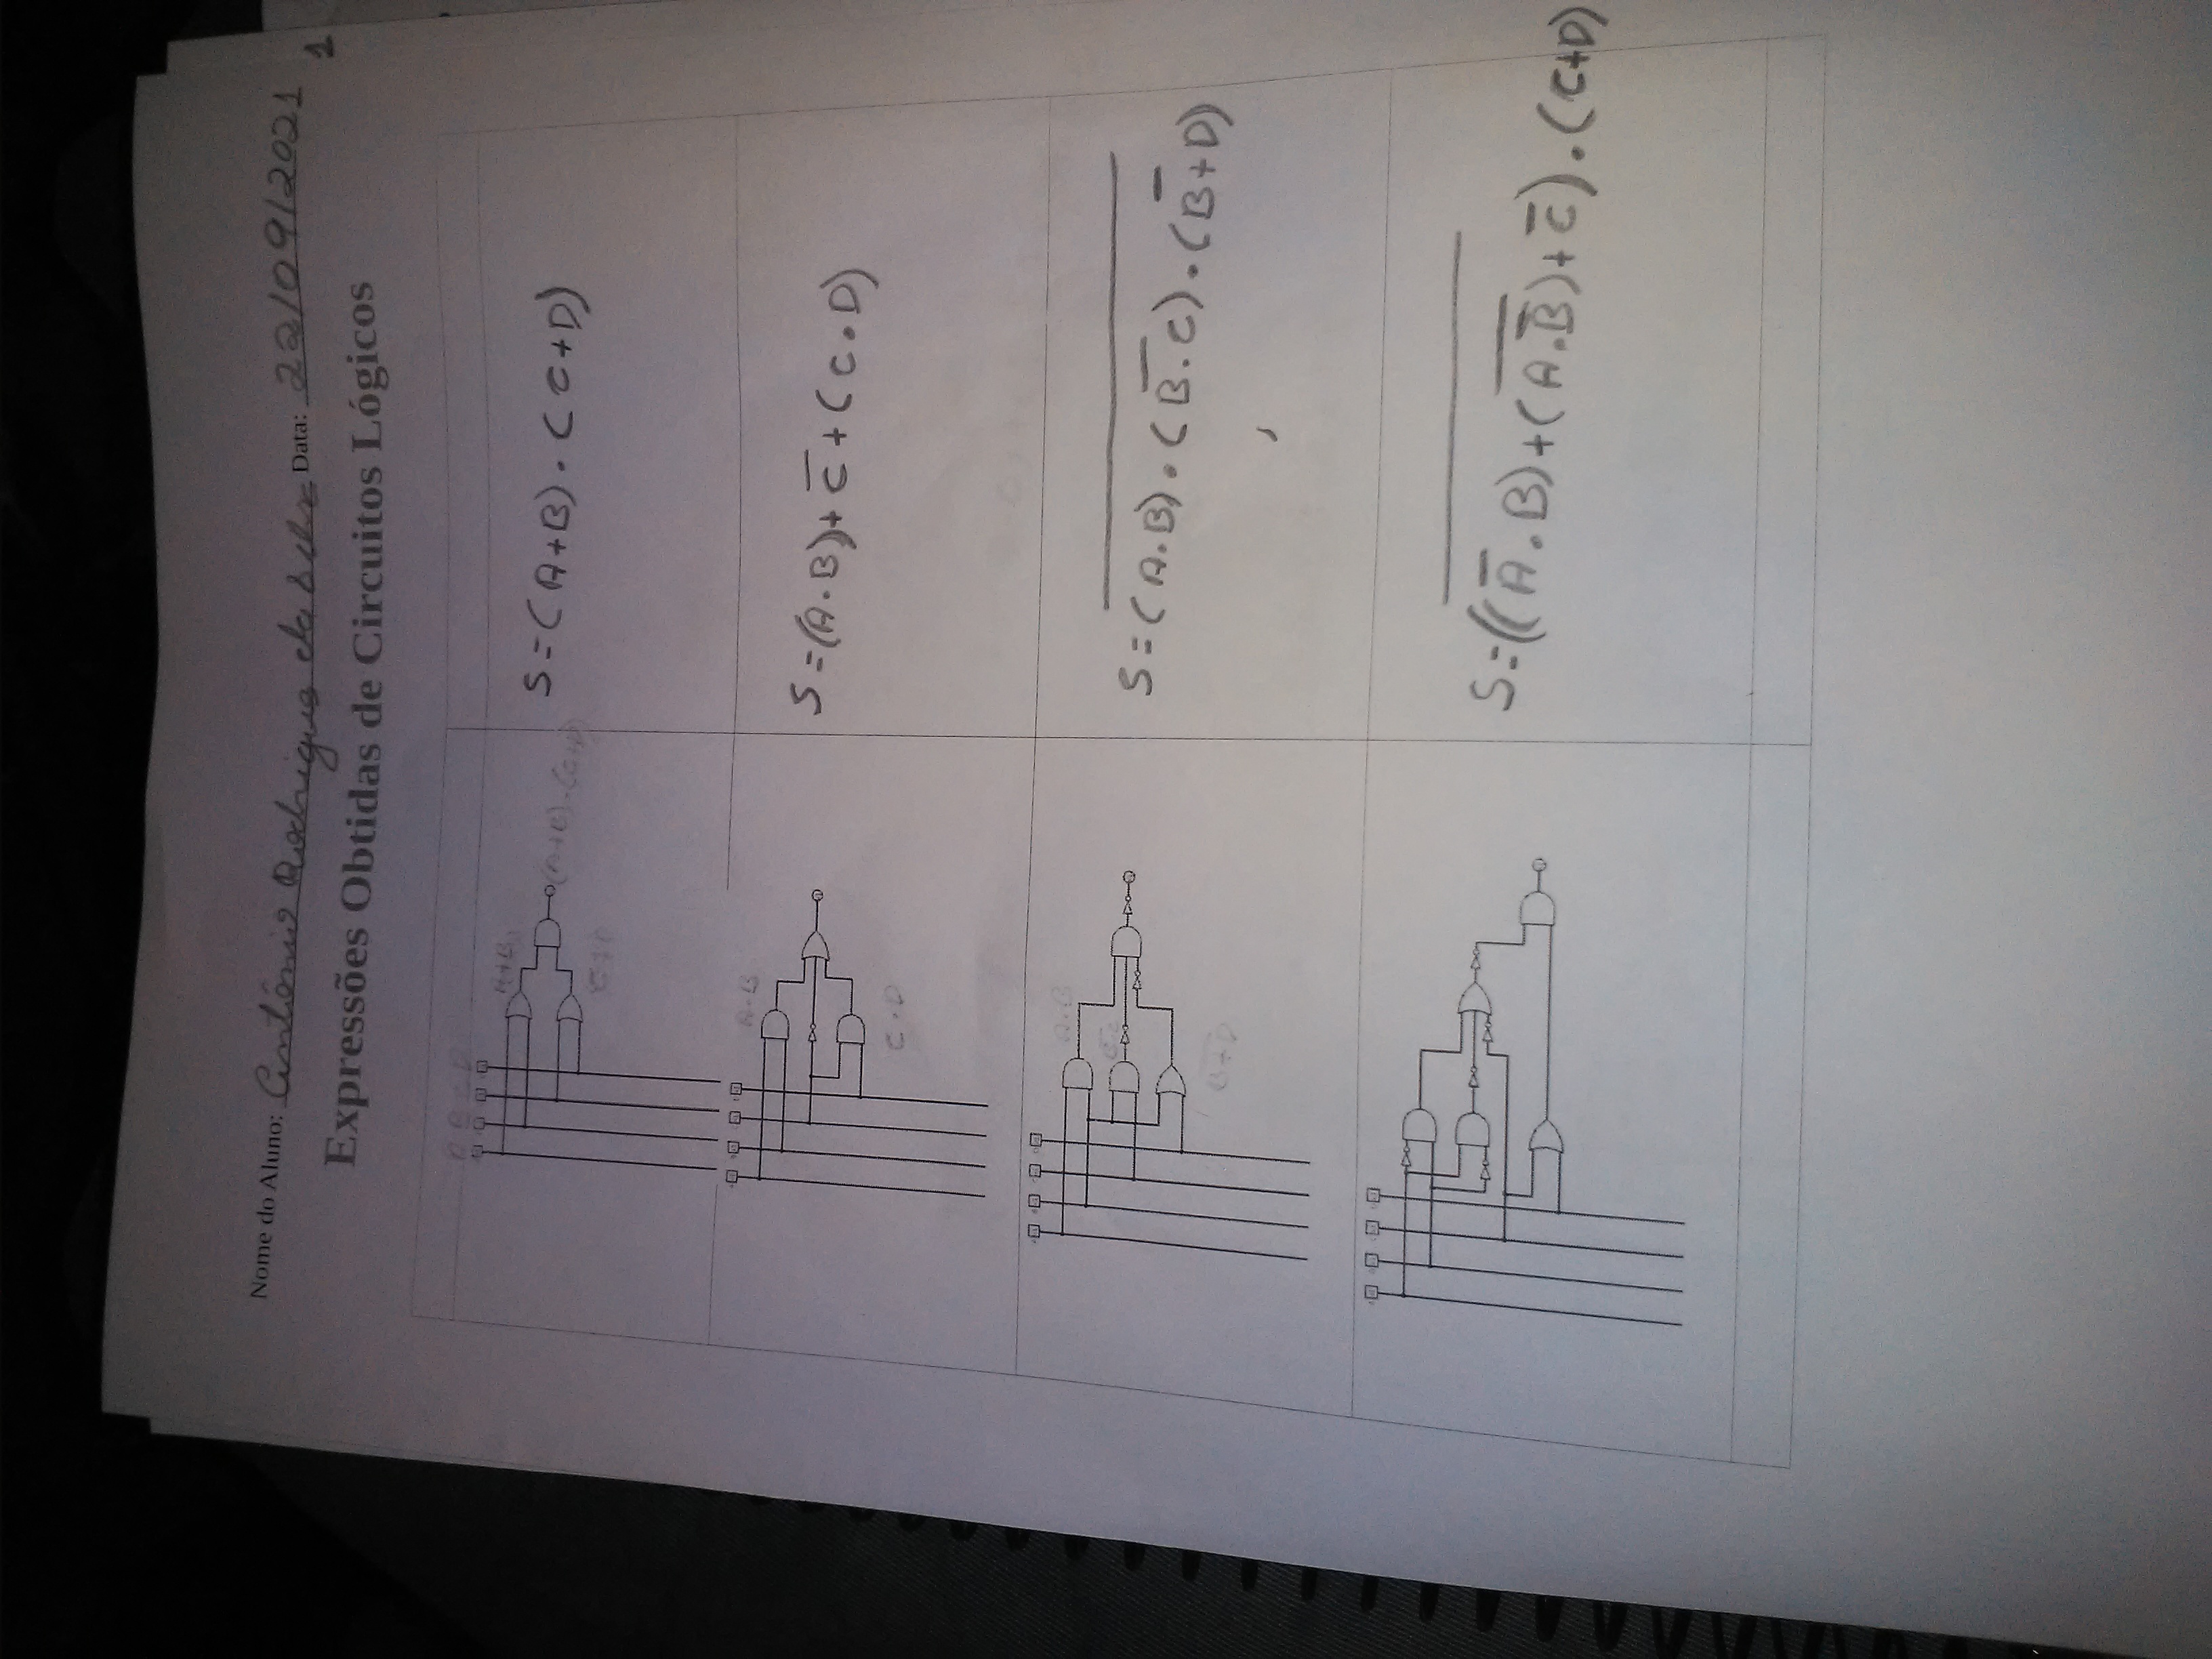 Nome do Aluno: Antônio Rodrigues da Silva Data: 22/09/2021
1
Expressões Obtidas de Circuitos Lógicos
A B C D
A+B
S=(A+B).(C+D)
(A+B).(C+D)
C+D
A.B
S=(A.B)+C̅+(C.D)
C.D
A.B
B.C
S=(A.B).(B̅.̅C̅).(B+̅D)
B+D
S=((A̅.B)+(A̅.̅B̅)+C̅).(C+D)